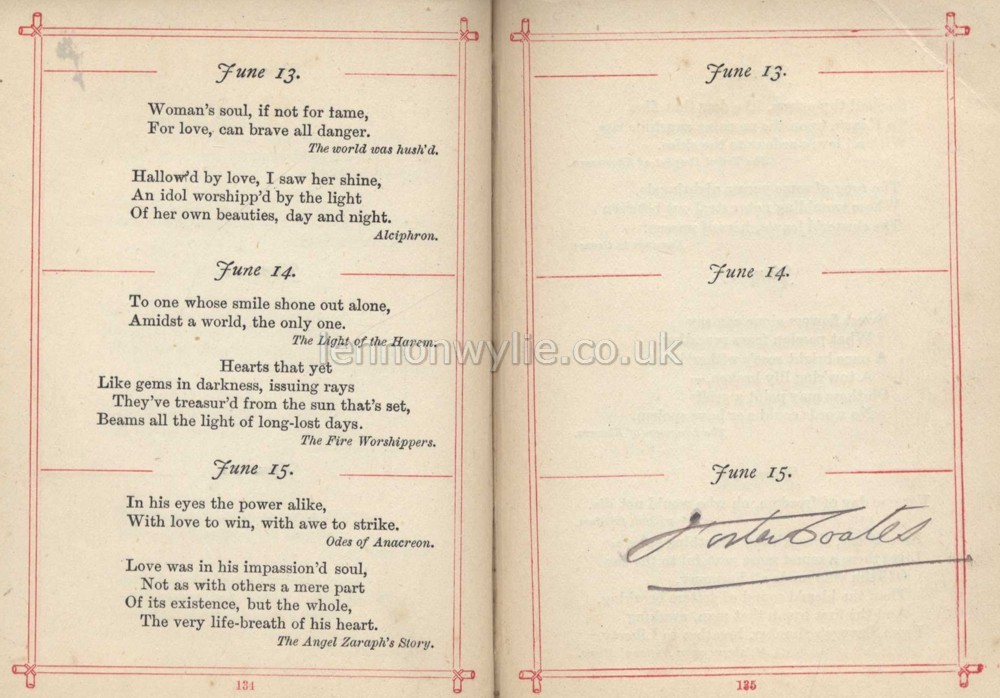 June 13.
Woman's soul, if not for fame,
For love, can brave all danger.
The world was hush'd.
Hallow'd by love, I saw her shine,
An idol worshipp'd by the light
Of her own beauties, day and night.
Alciphron.
June 14.
To one whose smile shone out alone,
Amidst a world, the only one.
The Light of the Harem.
Hearts that yet
Like gems in darkness, issuing rays
They've treasur'd from the sun that's set,
Beams all the light of long-lost days.
The Fire Worshippers.
June 15.
In his eyes the power alike,
With love to win, with awe to strike.
Odes of Anacreon.
Love was in his impassion'd soul,
Not as with others a mere part
Of its existence, but the whole,
The very life-breath of his heart.
The Angel Zaraph's Story.
134
June 13.
June 14.
June 15.
Foster Coates
135
lennonwylie.co.uk